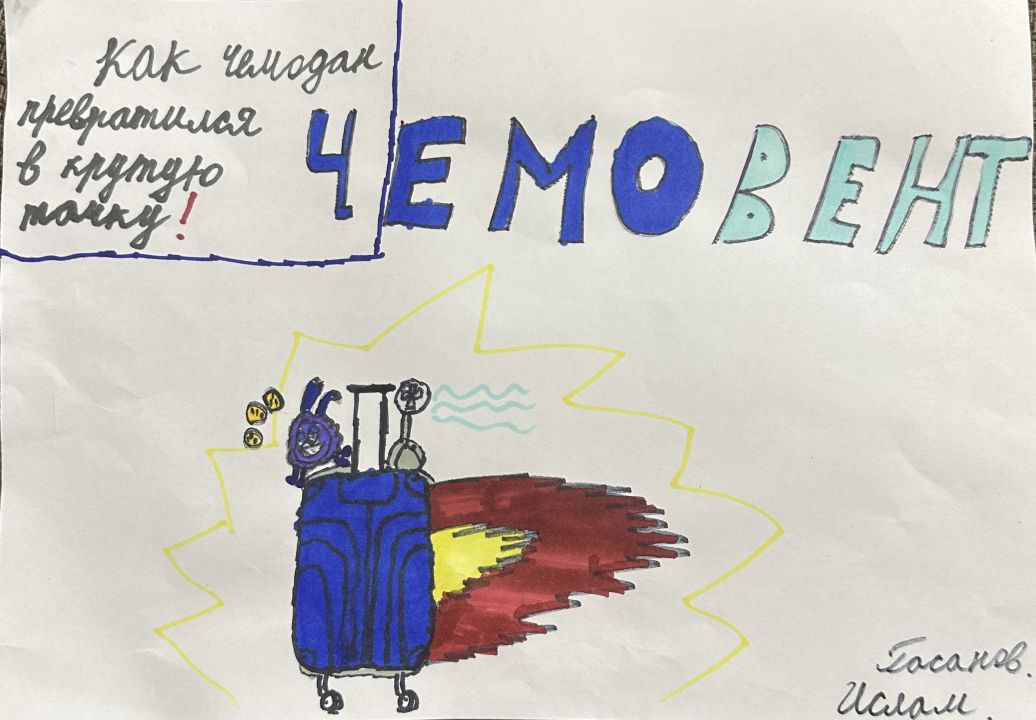 Как чемодан
превратился
в крутую
тачку!
ЧЕМОВЕНТ
Гасанов.
Ислам.